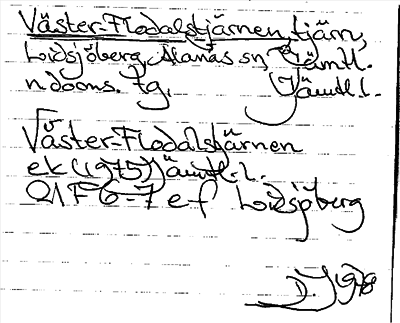 Väster-Flodalstjärnen, tjärn,
Lidsjöberg, Alanäs sn, Jämtl.
n.doms. tg, Jämtl. l.
Väster-Flodalstjärnen
ek (1975) Jämtl. l.
21F 6-7 e f Lidsjöberg
D.J 1978